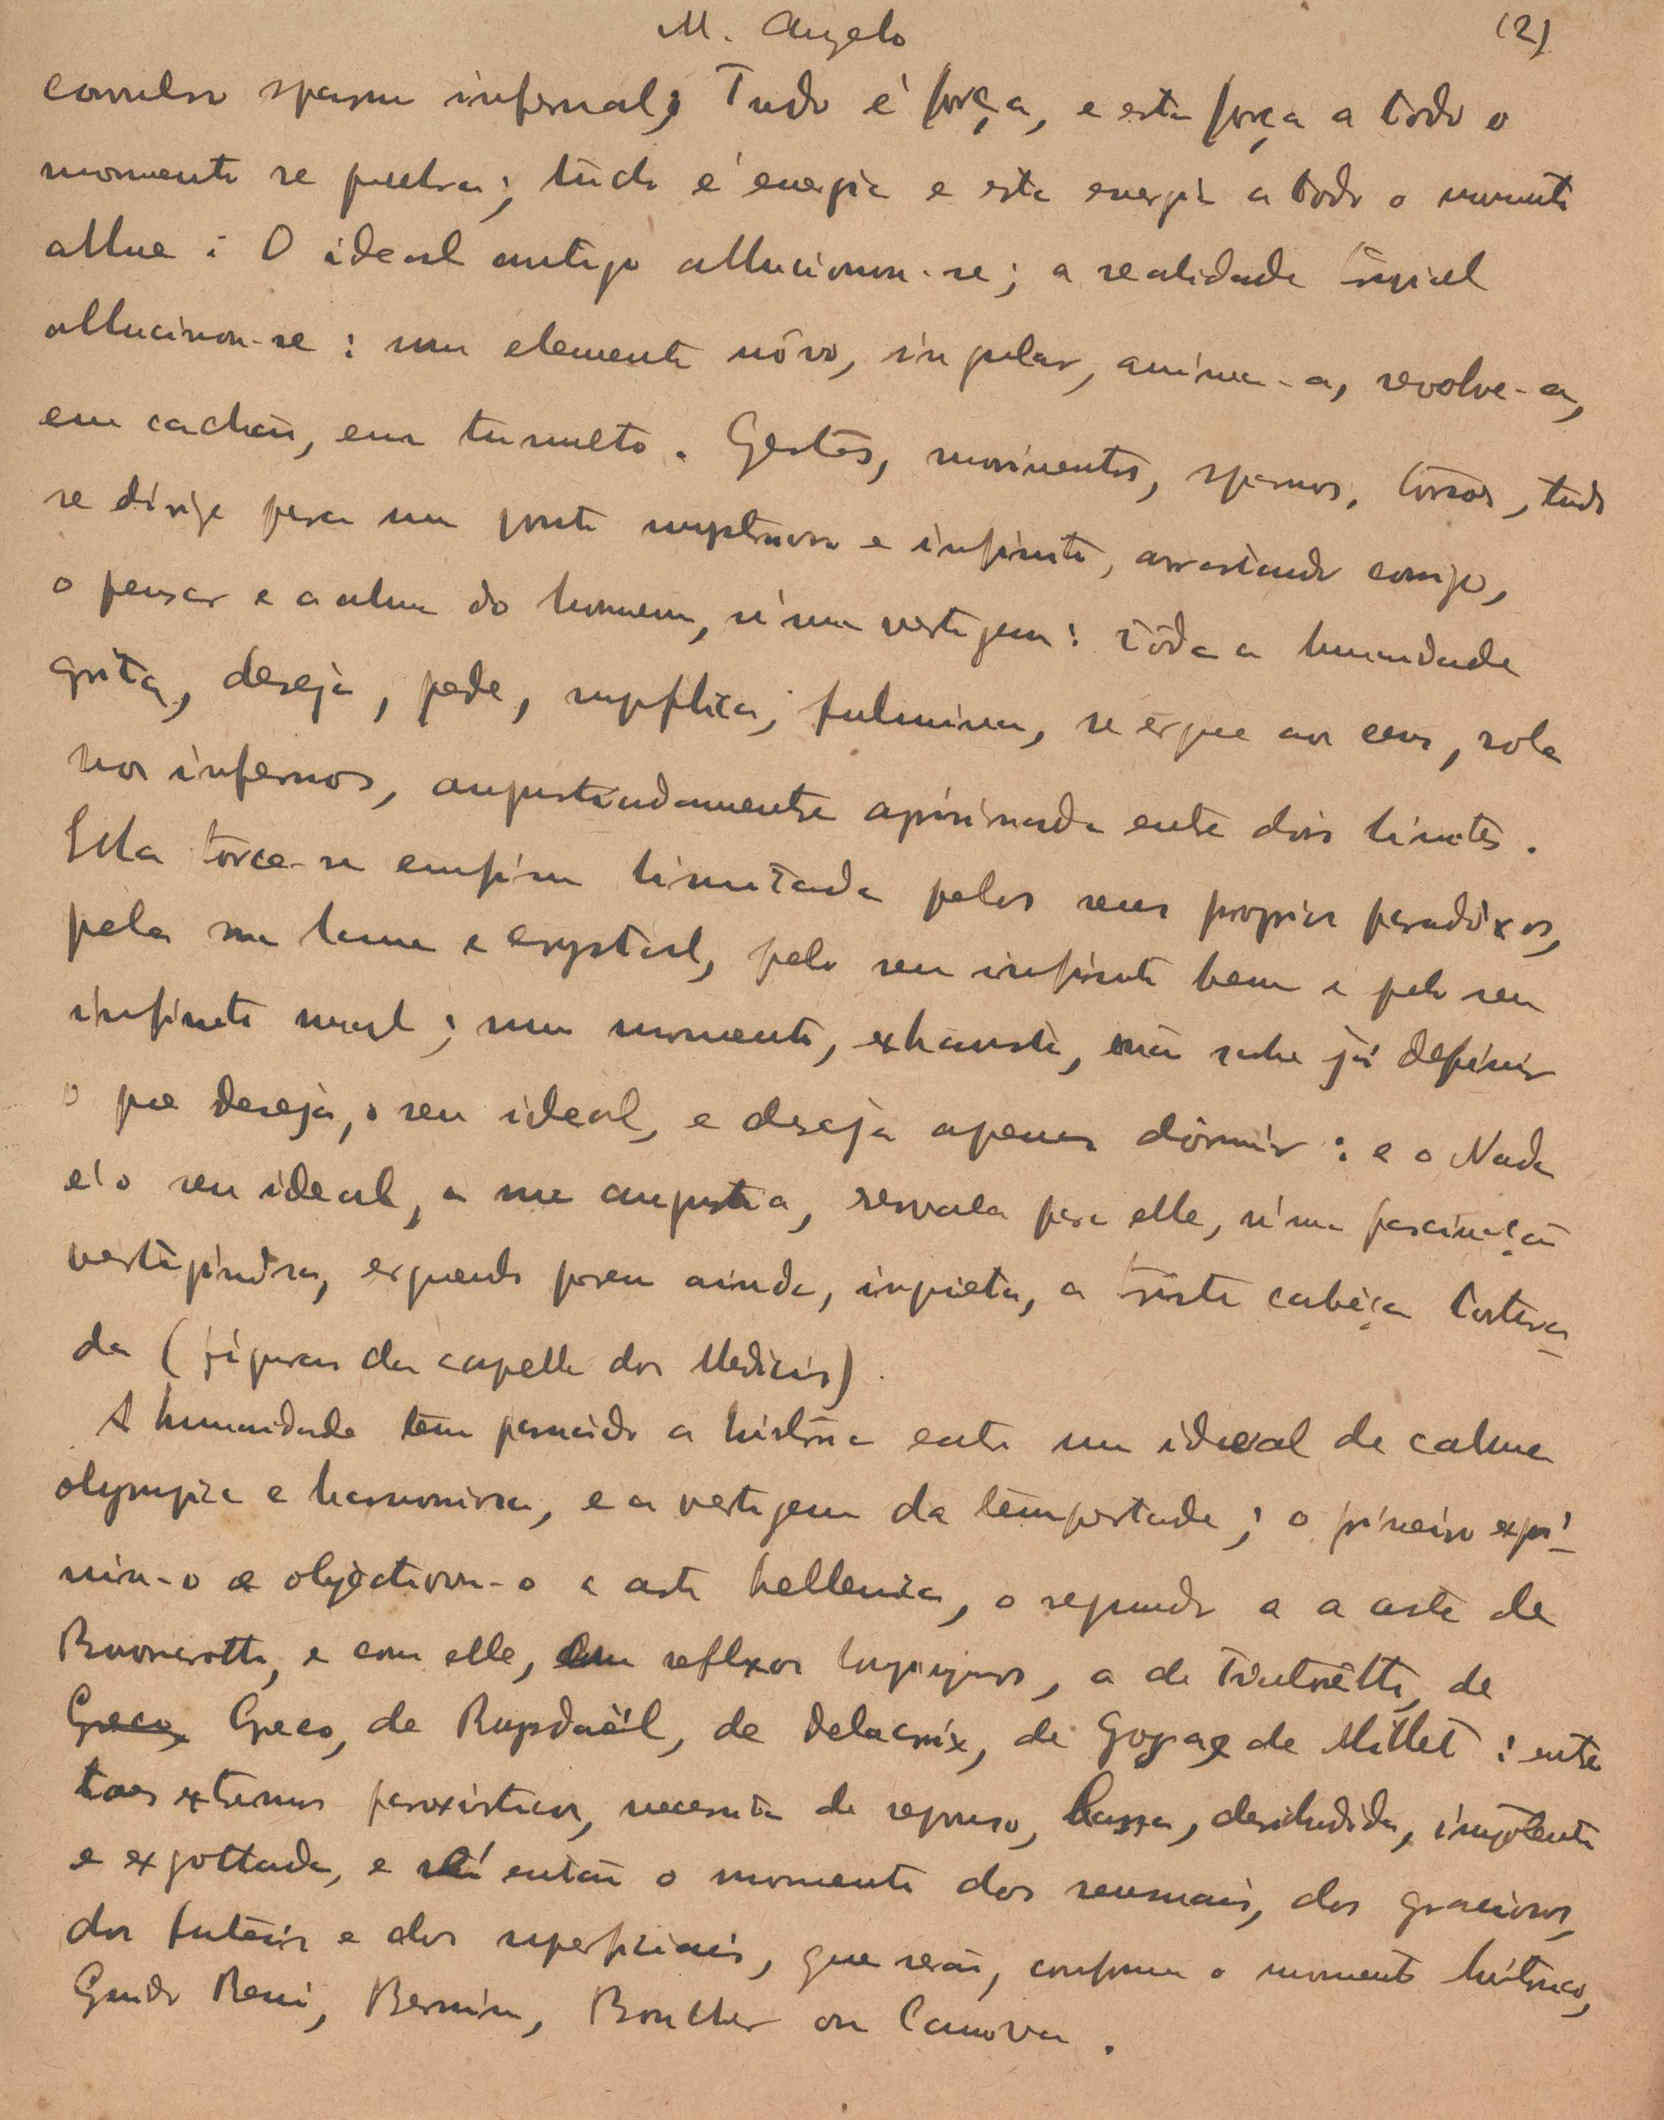 M. Angelo (2)
convulso spasmo infernal; Tudo é força, e esta força a todo o
momento se quebra; tudo é energia e esta energia a todo o momento
allue: O ideal antigo allucionou-se; a realidade
allucinou-se: um elemento nôvo, singular, anima-a, revolve-a,
em cachão, em tumulto. Gestos, movimentos, spasmos, torsos, tudo
se dirige para um ponto mysterioso e infinito, arrastando comsigo,
o pensar e a alma do homem, n'uma vertigem: tôda a humanidade
grita, deseja, pede, supplica, fulmina, se ergue aos ceus, rola
nos infernos, angustiadamente aprisionada entre dois limites.
Ella torce-se emfim limitada pelos seus proprios paradóxos,
pela sua lama e crystal, pelo seu infinito bem e pelo seu
infinito mal; um momento, exhausta, não sabe já definir
o que deseja, o seu ideal, e deseja apenas dôrmir: e o Nada
é o seu ideal, a sua angustia, resvala para elle, n'uma fascinação
vertiginosa, erguendo porem ainda, inquieta, a triste cabêça tortura-
da (figuras da capella dos Medicis).
A humanidade tem passado a história entre um ideal de calma
olympica e harmoniosa, e a vertigem da tempestade; o primeiro expri-
miu-o e objectivou-o a arte hellenica, o segundo a a arte de
Buonarotti, e com elle, em reflexos longinquos, a de Tintorêtto, de
Greco, Greco, de Ruysdaël, de Delacroix, de Goya e de Millet: entre
taes extremos paroxisticos, necessita de repouso, lassa, desilludida, impotente
e exgottada, e é então o momento dos sensuais, dos graciosos,
dos futeis e dos superficiais, que serão, conforme o momento histórico,
Guido Reni, Bernini, Boucher ou Canova.